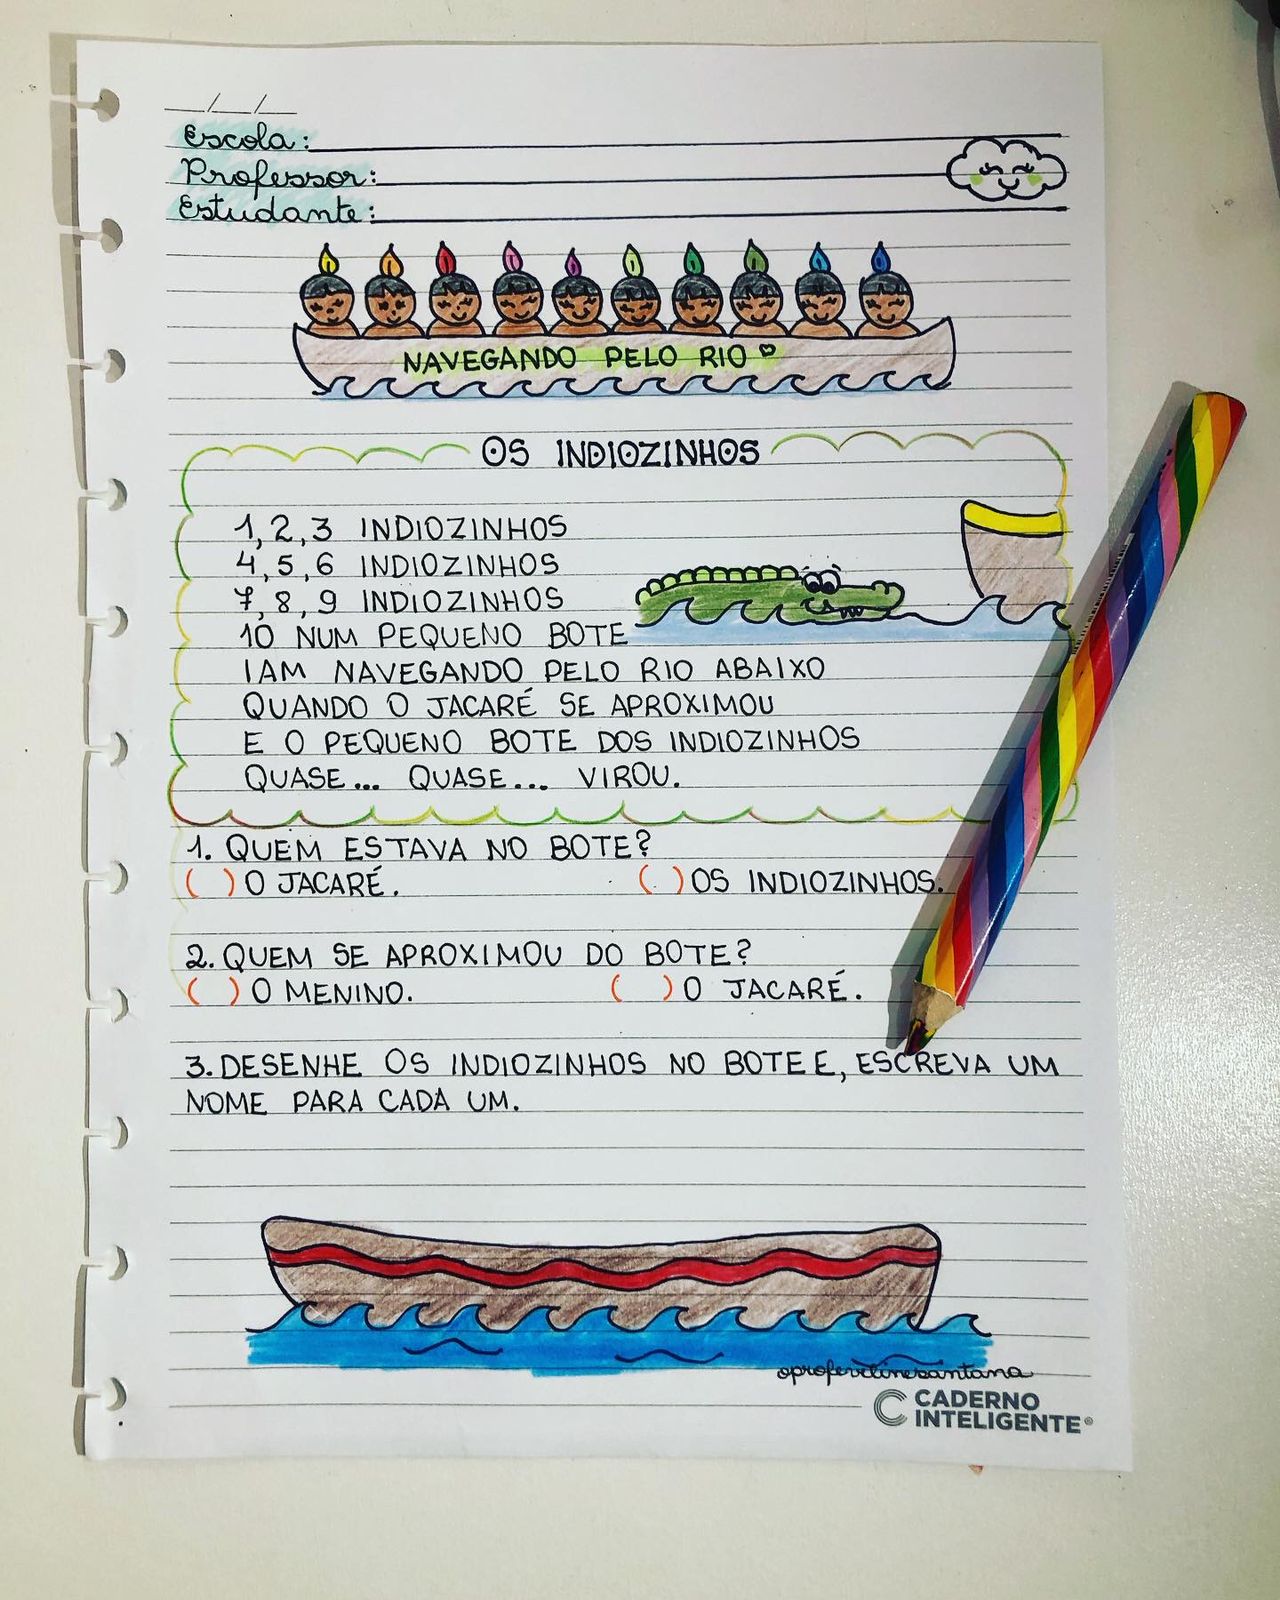 __/__/__
Escola:
Professor:
Estudante:
NAVEGANDO PELO RIO
OS INDIOZINHOS
1, 2, 3 INDIOZINHOS
4, 5, 6 INDIOZINHOS
7, 8, 9 INDIOZINHOS
10 NUM PEQUENO BOTE
IAM NAVEGANDO PELO RIO ABAIXO
QUANDO O JACARÉ SE APROXIMOU
E O PEQUENO BOTE DOS INDIOZINHOS
QUASE... QUASE... VIROU.
1. QUEM ESTAVA NO BOTE?
( ) O JACARÉ. ( ) OS INDIOZINHOS.
2. QUEM SE APROXIMOU DO BOTE?
( ) O MENINO. ( ) O JACARÉ.
3. DESENHE OS INDIOZINHOS NO BOTE E, ESCREVA UM
NOME PARA CADA UM.
CADERNO
INTELIGENTE®